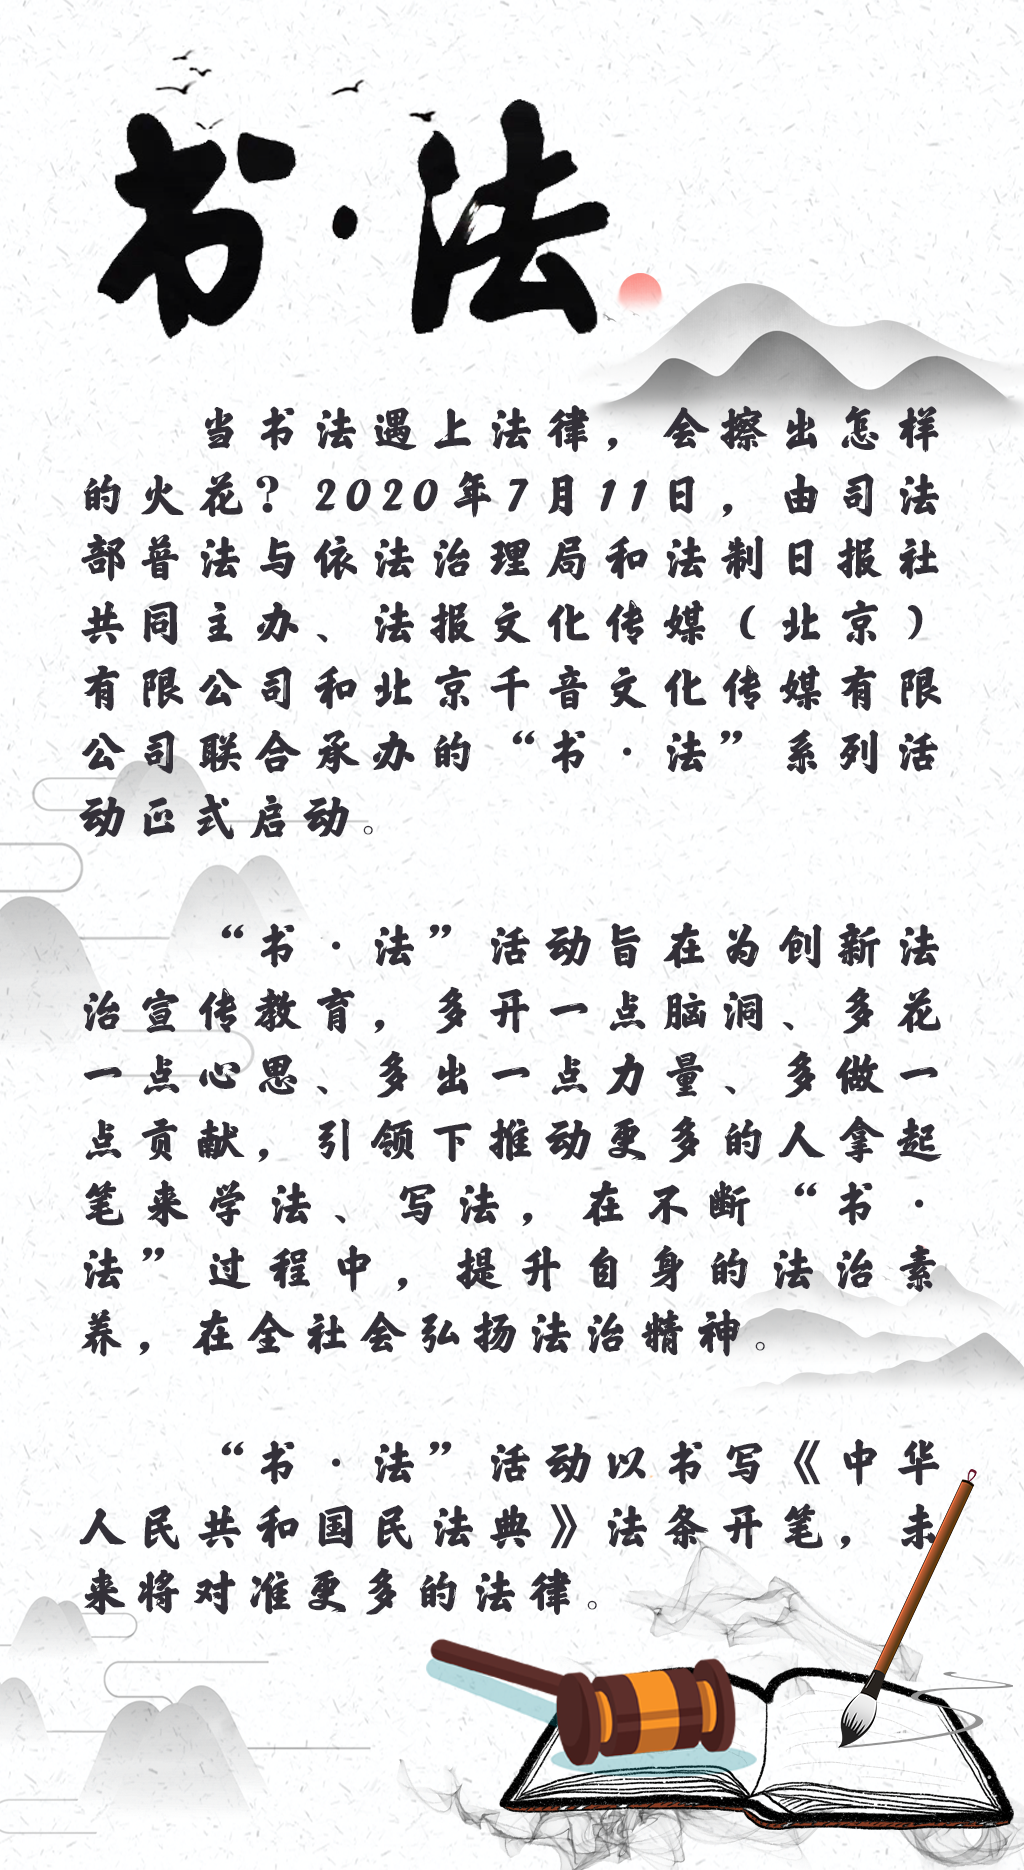 书·法
当书法遇上法律，会擦出怎样
的火花？2020年7月11日，由司法
部普法与依法治理局和法制日报社
共同主办、法报文化传媒（北京）
有限公司和北京千音文化传媒有限
公司联合承办的“书·法”系列活
动正式启动。
“书·法”活动旨在为创新法
治宣传教育，多开一点脑洞、多花
一点心思、多出一点力量、多做一
点贡献，引领下推动更多的人拿起
笔来学法、写法，在不断“书·
法”过程中，提升自身的法治素
养，在全社会弘扬法治精神。
“书·法”活动以书写《中华
人民共和国民法典》法条开笔，未
来将对准更多的法律。